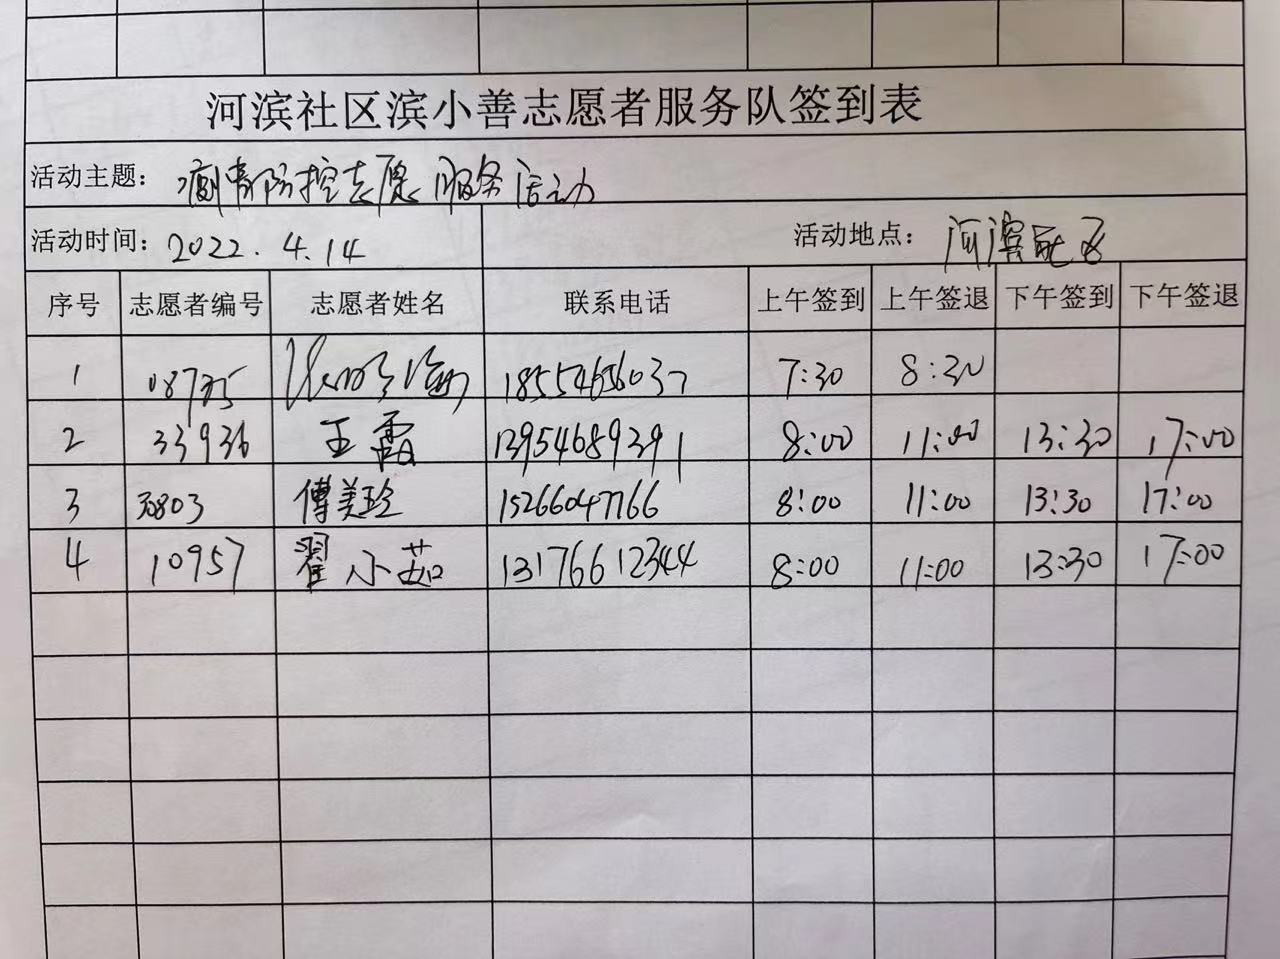 河滨社区滨小善志愿者服务队签到表
活动主题： 疫情防控志愿服务活动
活动时间：2022.4.14 活动地点：河滨社区
序号 志愿者编号 志愿者姓名 联系电话 上午签到 上午签退 下午签到 下午签退
1 18554656037 7:30 8:30
2 33936 王霞 13954689391 8:00 11:00 13:30 17:00
3 30803 傅美玲 15266047766 8:00 11:00 13:30 17:00
4 10957 翟小茹 13176612344 8:00 11:00 13:30 17:00